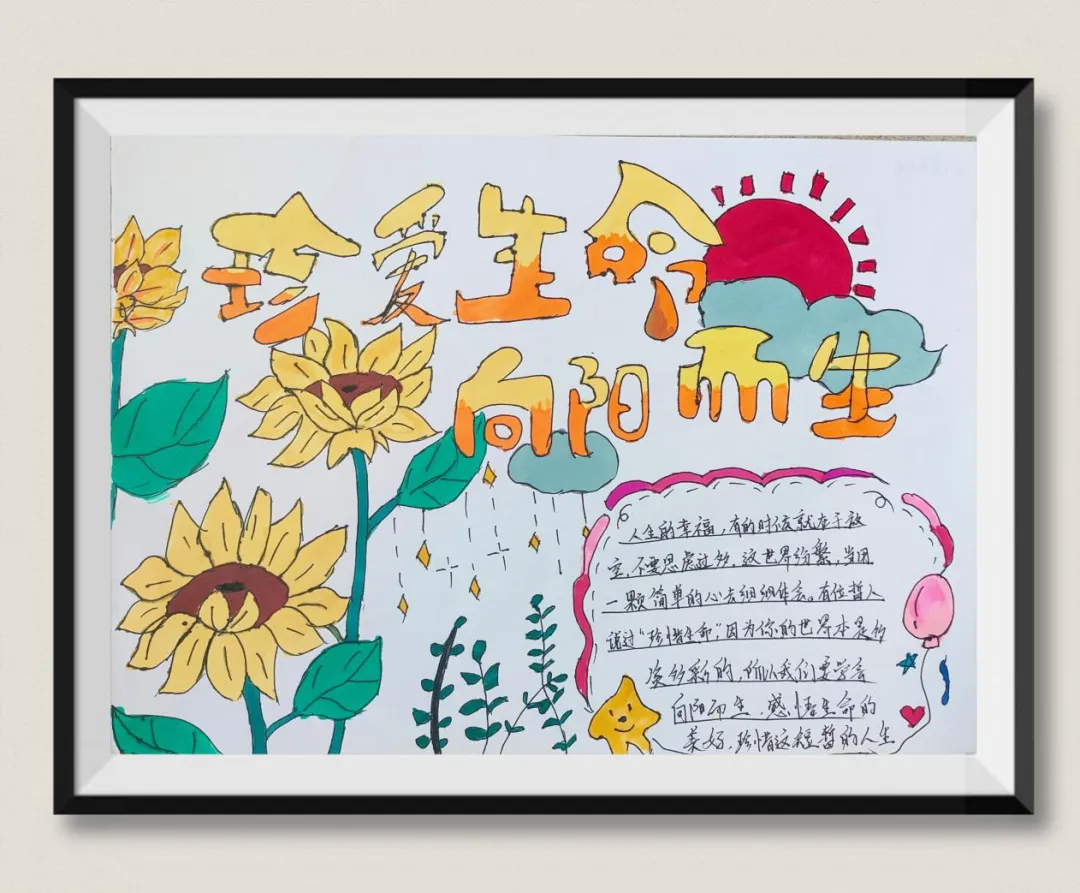 珍爱生命
向阳而生
人生的幸福，有的时候就在于放
空，不要思虑过多。这世界纷繁，当用
一颗简单的心去细细体会。有位哲人
说过"珍惜生命"，因为你的世界本是多
姿多彩的，所以我们要学会
向阳而生，感悟生命的
美好，珍惜这短暂的人生